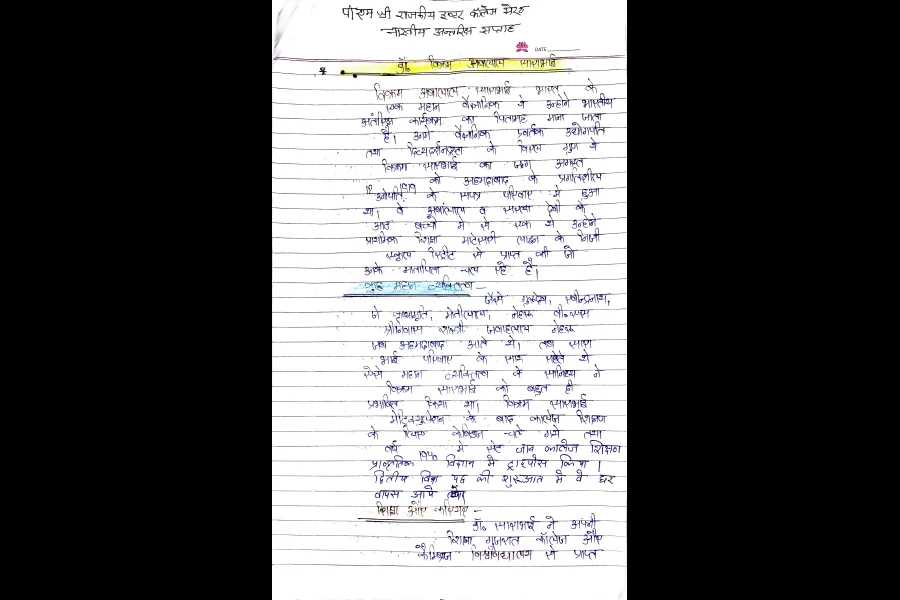 पी एम श्री राजकीय इण्टर कॉलेज मेरठ
भारतीय अन्तरिक्ष सप्ताह
DATE
डॉ. विक्रम अंबालाल साराभाई
विक्रम अंबालाल साराभाई भारत के
एक महान वैज्ञानिक थे उन्होने भारतीय
अंतरिक्ष कार्यक्रम का पितामह माना जाता
है। उनमे वैज्ञानिक प्रवर्तक उद्योगपति
तथा के विरल गुण थे
विक्रम साराभाई का जन्म अगस्त
12 1919 को अहमदाबाद के प्रगतिशील
उद्योगपति के सपन्न परिवार मे हुआ
था। वे अंबालाल व सरला देवी के
आठ बच्चो मे से एक थे उन्होने
प्राथमिक शिक्षा मोटेसरी लाइन के निजी
स्कूल से प्राप्त की जो
उनके मातापिता चला रहे है।
कुछ महान व्यक्तित्व -
जैसे गुरुदेव, रवीन्द्रनाथ,
जे कृष्णमूर्ति, मोतीलाल, नेहरू वी. एस
श्रीनिवास शास्त्री जवाहरलाल नेहरू
जब अहमदाबाद आते थे। तब सारा
भाई परिवार के साथ रहते थे
ऐसे महान व्यक्तित्व के सानिध्य ने
विक्रम साराभाई को बहुत ही
प्रभावित किया था। विक्रम साराभाई
मेट्रिक्युलेशन के बाद कालेज शिक्षण
के लिए केम्ब्रिज चले गये तथा
वर्ष मे सेंट जॉन कालेज शिक्षण
प्राकृतिक विज्ञान मे ट्राइपोस किया।
द्वितीय विश्व युद्ध की शुरुआत मे वे घर
वापस आये
शिक्षा और करियर -
डॉ. साराभाई ने अपनी
शिक्षा गुजरात कॉलेज और
कैम्ब्रिज विश्वविद्यालय से प्राप्त